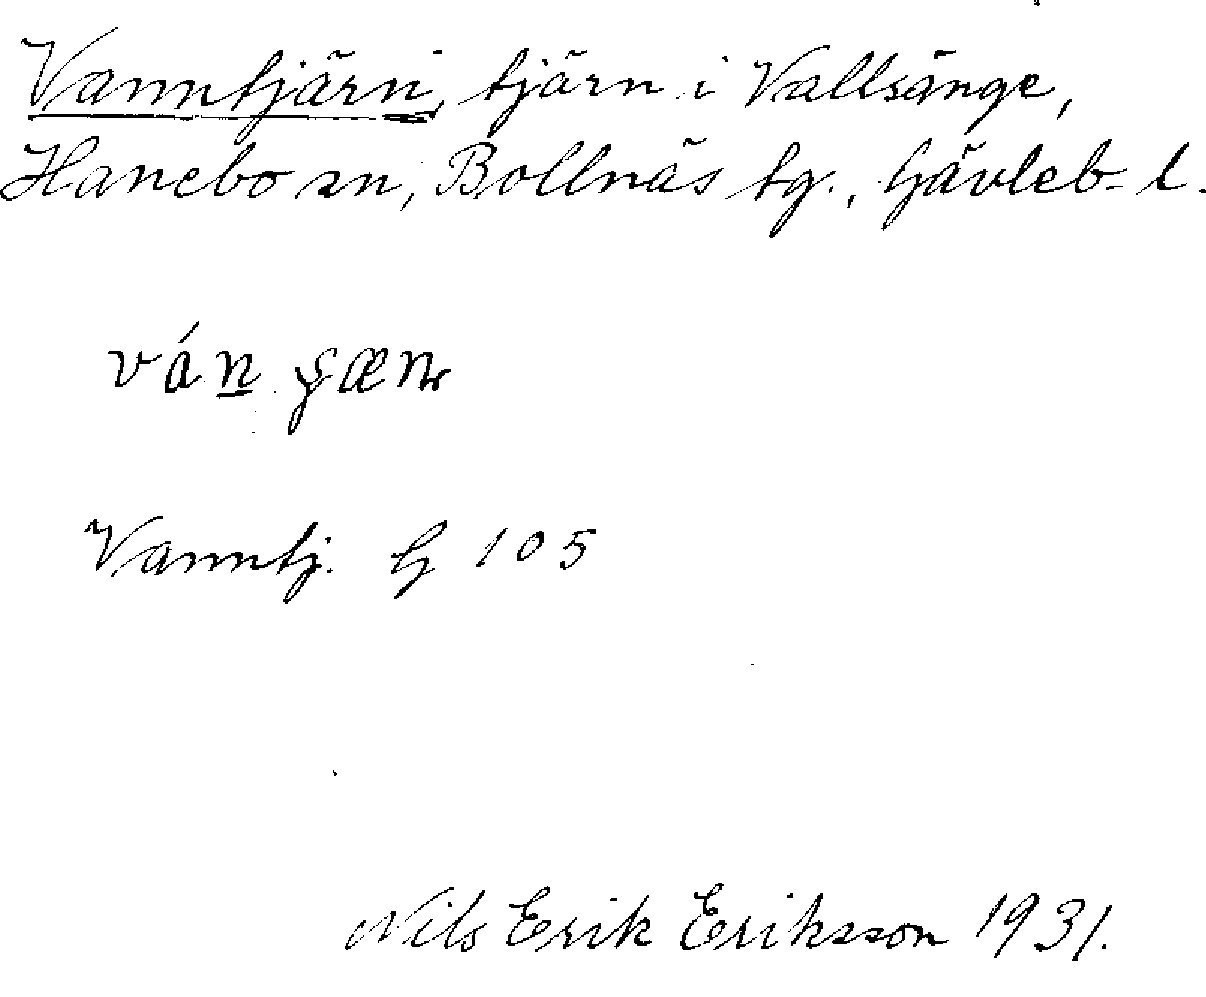 Vanntjärn, tjärn i Vallsänge,
Hanebo sn, Bollnäs tg., Gävleb. l.
ván
Vanntj. G 105
Nils Erik Eriksson 1931.